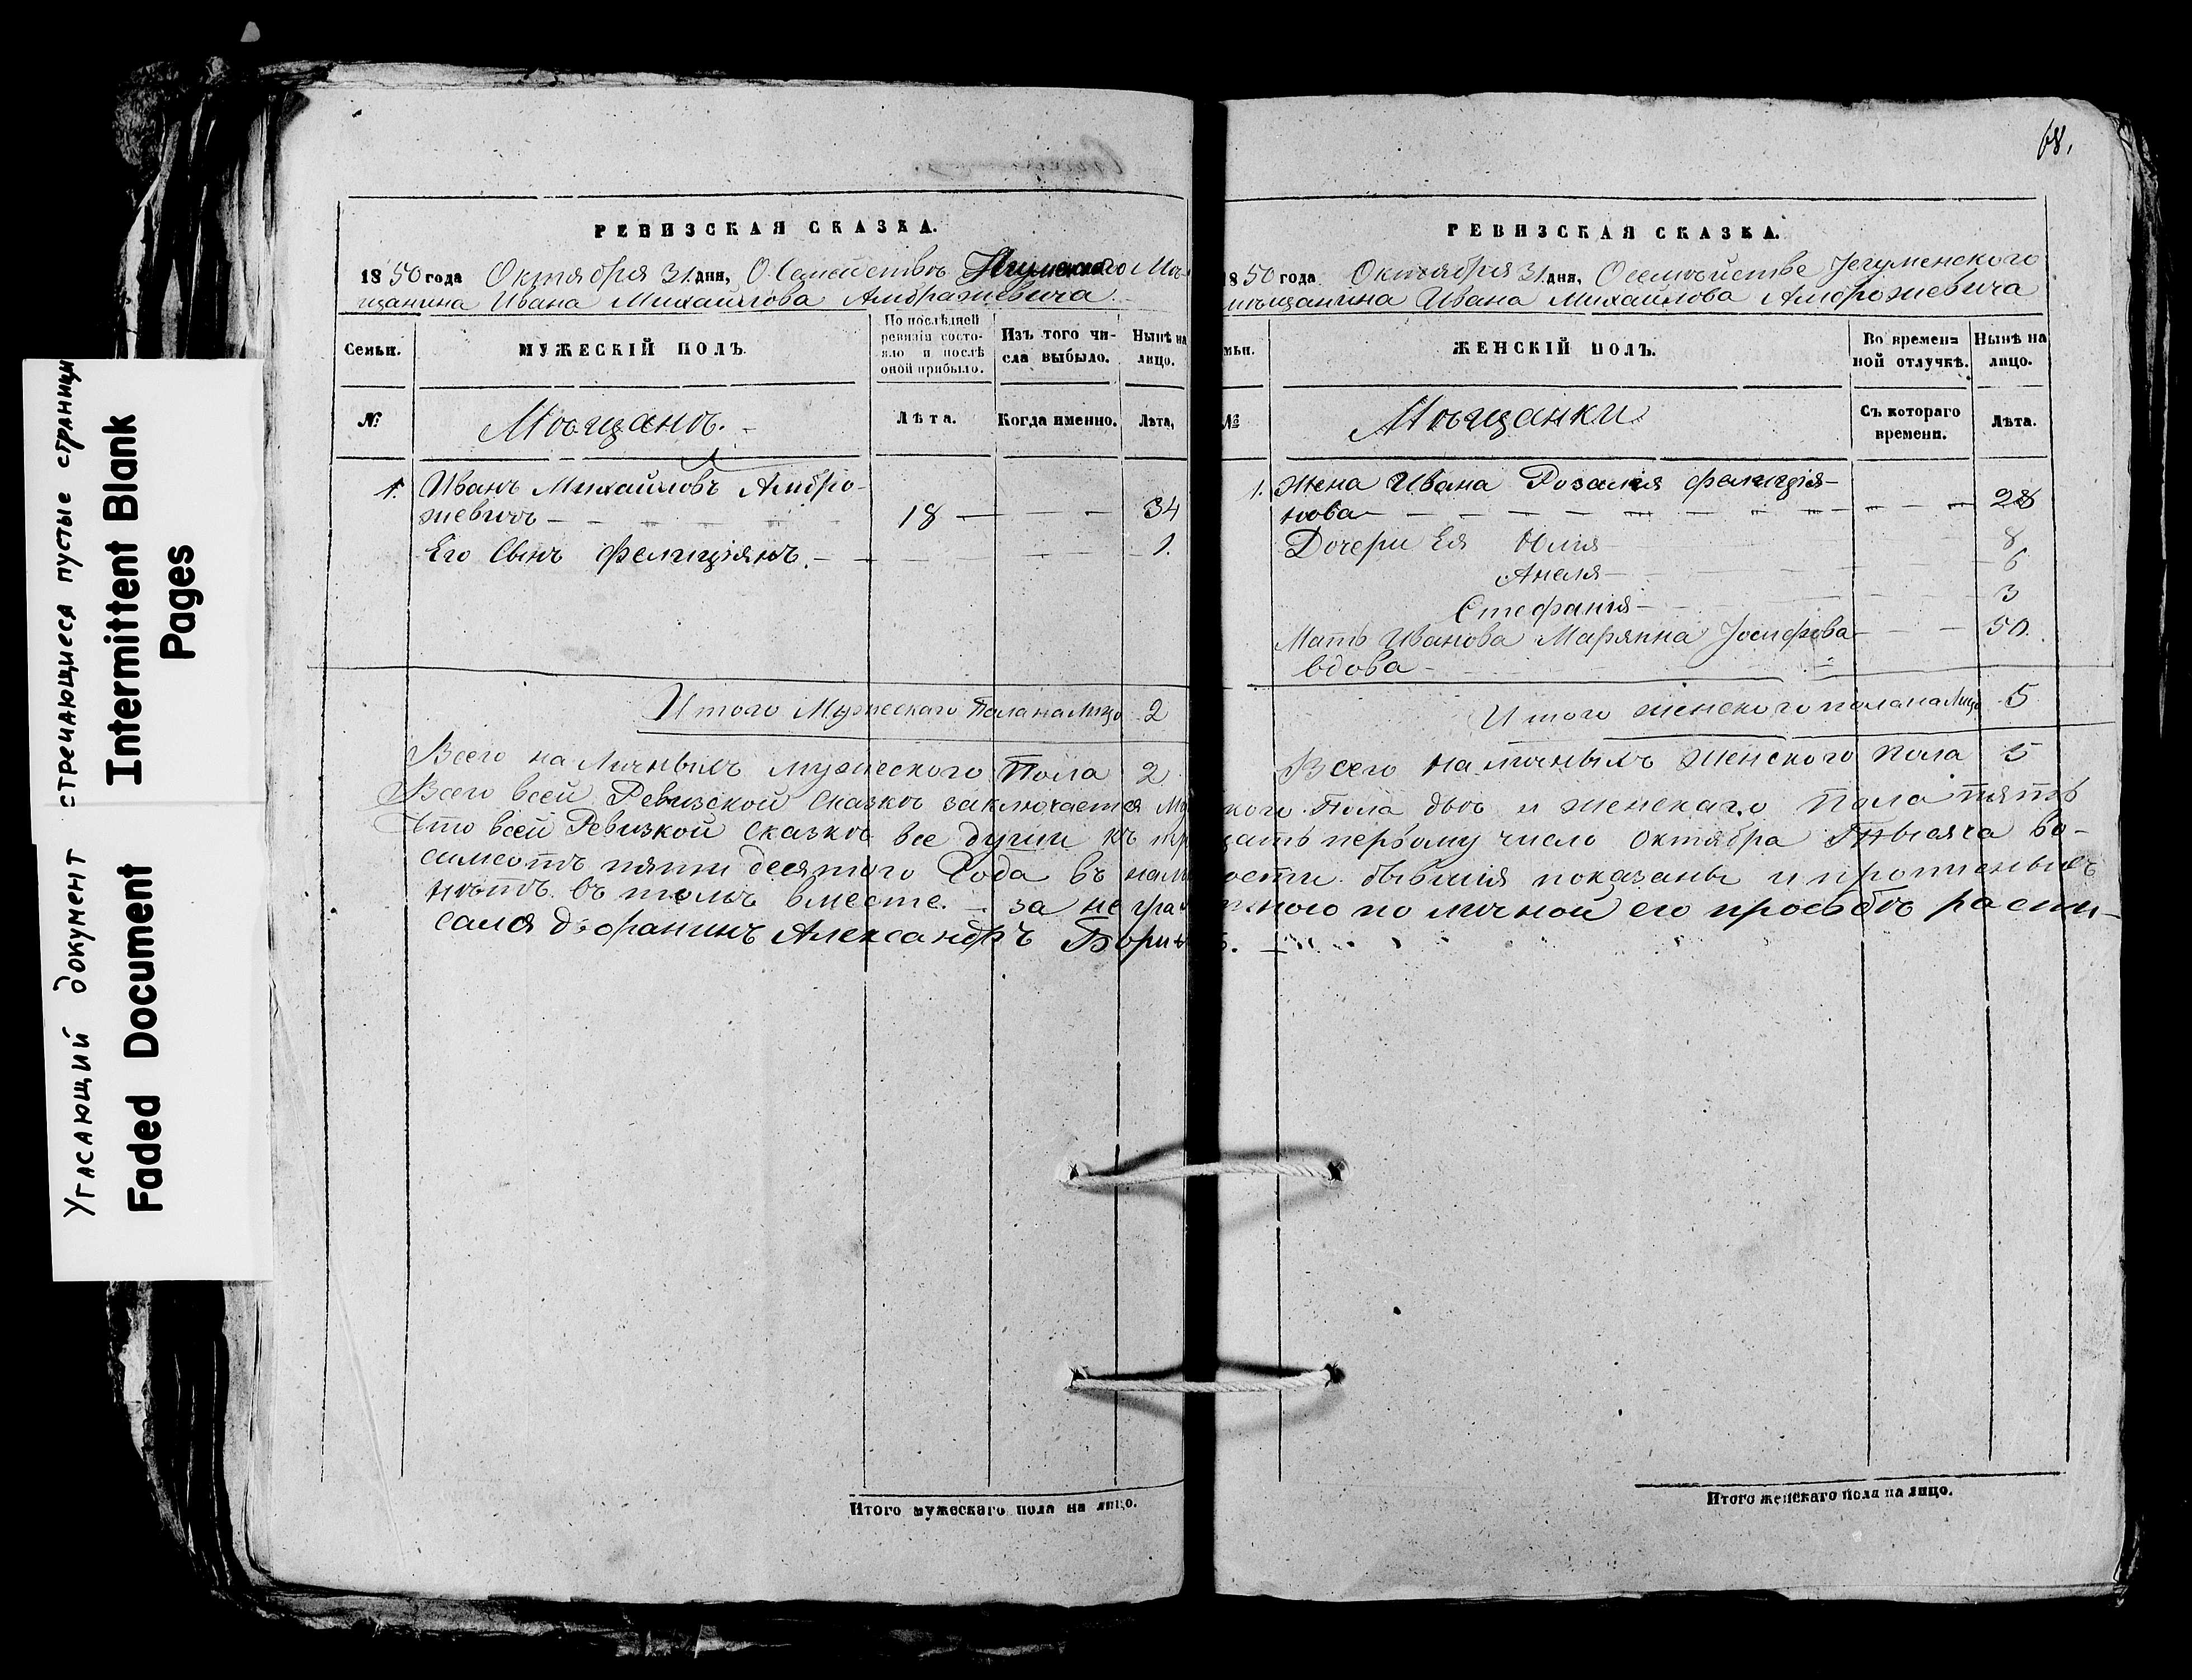 Угасающий документ стречающиеся пустые страници
Faded Document Intermittent Blank
Pages
68.
РЕВИЗСКАЯ СКАЗКА.
1850 года Октября 31 дня, О Семействѣ Игуменского Мѣ-
щанина Ивана Михаилова Амбражевича.
Семьи.
МУЖЕСКІЙ ПОЛЪ.
По послѣдней
ревизіи состо-
яло и послѣ
оной прибыло.
Изъ того чи-
сла выбыло.
Нынѣ на
лицо.
№
Мѣщанѣ.
Лѣта.
Когда именно.
Лѣта,
1. Иванъ Михайловъ Амбро-
жевичъ — 18 — — — 34
Его Сынъ Фелиціянъ. — — — 1.
Итого Мужескаго Пола на Лицо 2
Всего на Личныхъ мужеского Пола 2
РЕВИЗСКАЯ СКАЗКА.
1850 года Октября 31 дня, О семѣйстве Jегуменского
мѣщанина Ивана Михаилова Амброжевича
мьи.
ЖЕНСКІЙ ПОЛЪ.
Во времен=
ной отлучкѣ.
Нынѣ на
лицо.
№
Мѣщанки
Съ котораго
времени.
Лѣта.
1. Жена Ивана Розалия Фелиція-
нова — 28
Дочери Ея Юлия — 8
Анеля — 6
Стефания — 3
Мать Иванова Марянна Jосифова — 50.
вдова —
Итого женского пола на Лицо 5
Всего наличныхъ Женского пола 5
Всего всей Ревизской Сказкѣ заключается Му ского Пола двѣ и женскаго Пола пять
Что всей Ревизкой Сказкѣ все души къ цать первому число Октября Тысяча во-
симсотъ пятидесятого Года въ налич ости бывшия показаны и прописныхъ
нѣтъ въ томъ вместе. — за неграм тного по личной его просьбѣ распи-
сался дворанинъ Александръ
Итого мужескаго пола на лицо.
Итого женскаго пола на лицо.